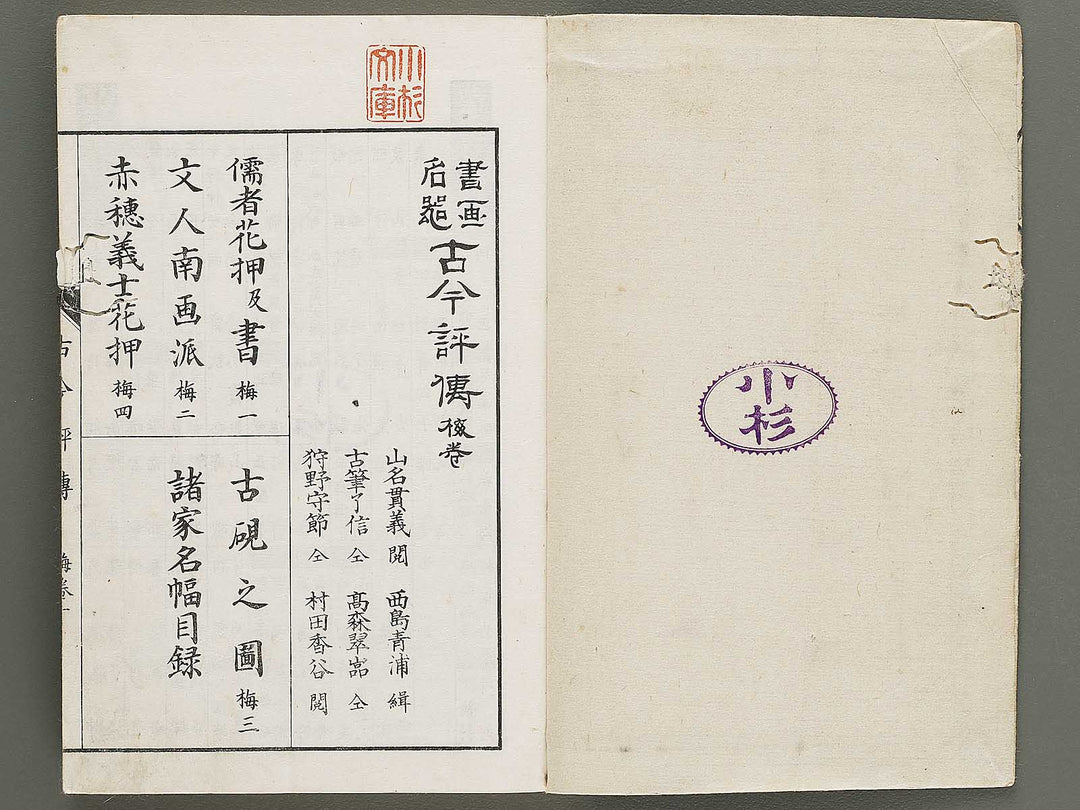 小杉
小杉
文庫
書画
名器
古今評傳 梅卷
山名貫義 閲
西島青浦 緝
古筆了信 仝
髙森翠嵒 仝
狩野守節 仝
村田香谷 閲
儒者花押及書 梅一
文人南画派 梅二
赤穗義士花押 梅四
古硯之圖 梅三
諸家名幅目録
古今評傳 梅卷